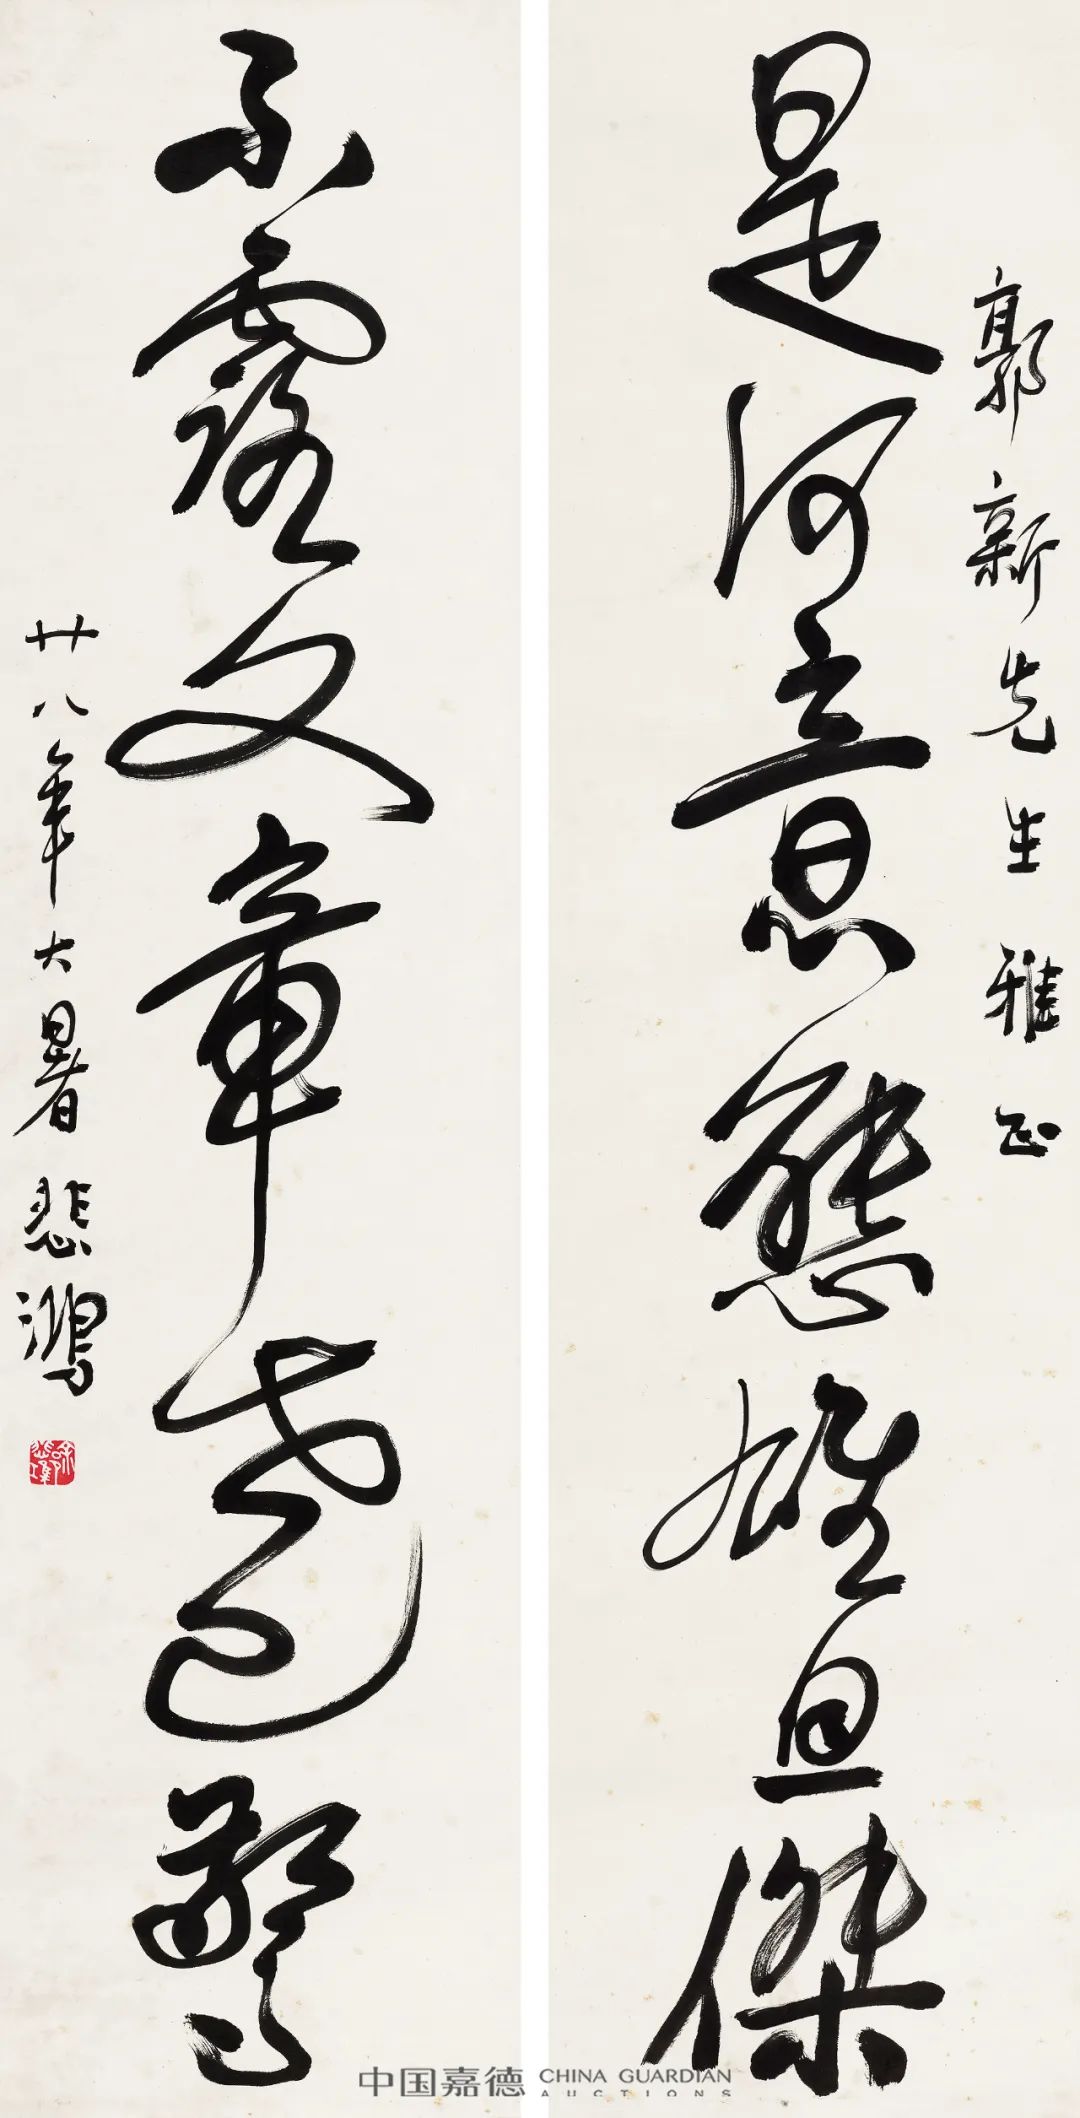 郭新先生雅正
是何意態雄且傑
不露文章世已驚
廿八年大暑 悲鴻
中国嘉德 CHINA GUARDIAN
AUCTIONS